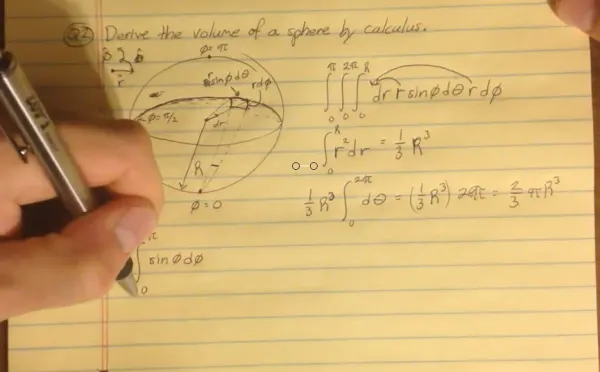 Q2) Derive the volume of a sphere by calculus.
φ = π
θ̂ φ̂
r̂
r sinφdθ
rdφ
φ = π/2
dr
R
φ = 0
∫₀^π ∫₀^2π ∫₀^R dr r sinφdθ r dφ
∫₀^R r² dr = 1/3 R³
1/3 R³ ∫₀^2π dθ = (1/3 R³) 2π = 2/3 πR³
∫₀^π sinφdφ